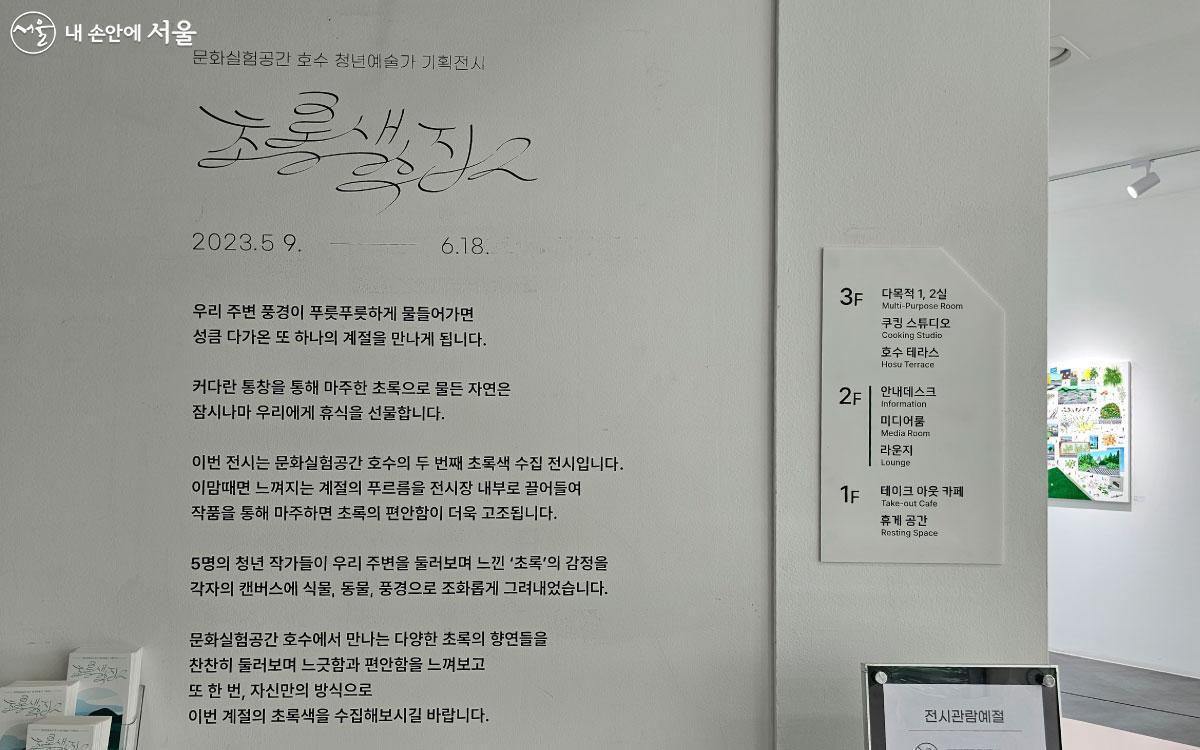 서울
내 손안에 서울
문화실험공간 호수 청년예술가 기획전시
초록색 수집2
2023.5 9. 6.18.
우리 주변 풍경이 푸릇푸릇하게 물들어가면
성큼 다가온 또 하나의 계절을 만나게 됩니다.
커다란 통창을 통해 마주한 초록으로 물든 자연은
잠시나마 우리에게 휴식을 선물합니다.
이번 전시는 문화실험공간 호수의 두 번째 초록색 수집 전시입니다.
이맘때면 느껴지는 계절의 푸르름을 전시장 내부로 끌어들여
작품을 통해 마주하면 초록의 편안함이 더욱 고조됩니다.
5명의 청년 작가들이 우리 주변을 둘러보며 느낀 ‘초록’의 감정을
각자의 캔버스에 식물, 동물, 풍경으로 조화롭게 그려내었습니다.
문화실험공간 호수에서 만나는 다양한 초록의 향연들을
찬찬히 둘러보며 느긋함과 편안함을 느껴보고
또 한 번, 자신만의 방식으로
이번 계절의 초록색을 수집해보시길 바랍니다.
3F 다목적 1, 2실
Multi-Purpose Room
쿠킹 스튜디오
Cooking Studio
호수 테라스
Hosu Terrace
2F 안내데스크
Information
미디어룸
Media Room
라운지
Lounge
1F 테이크 아웃 카페
Take-out Cafe
휴게 공간
Resting Space
전시관람예절
초록색 수집2